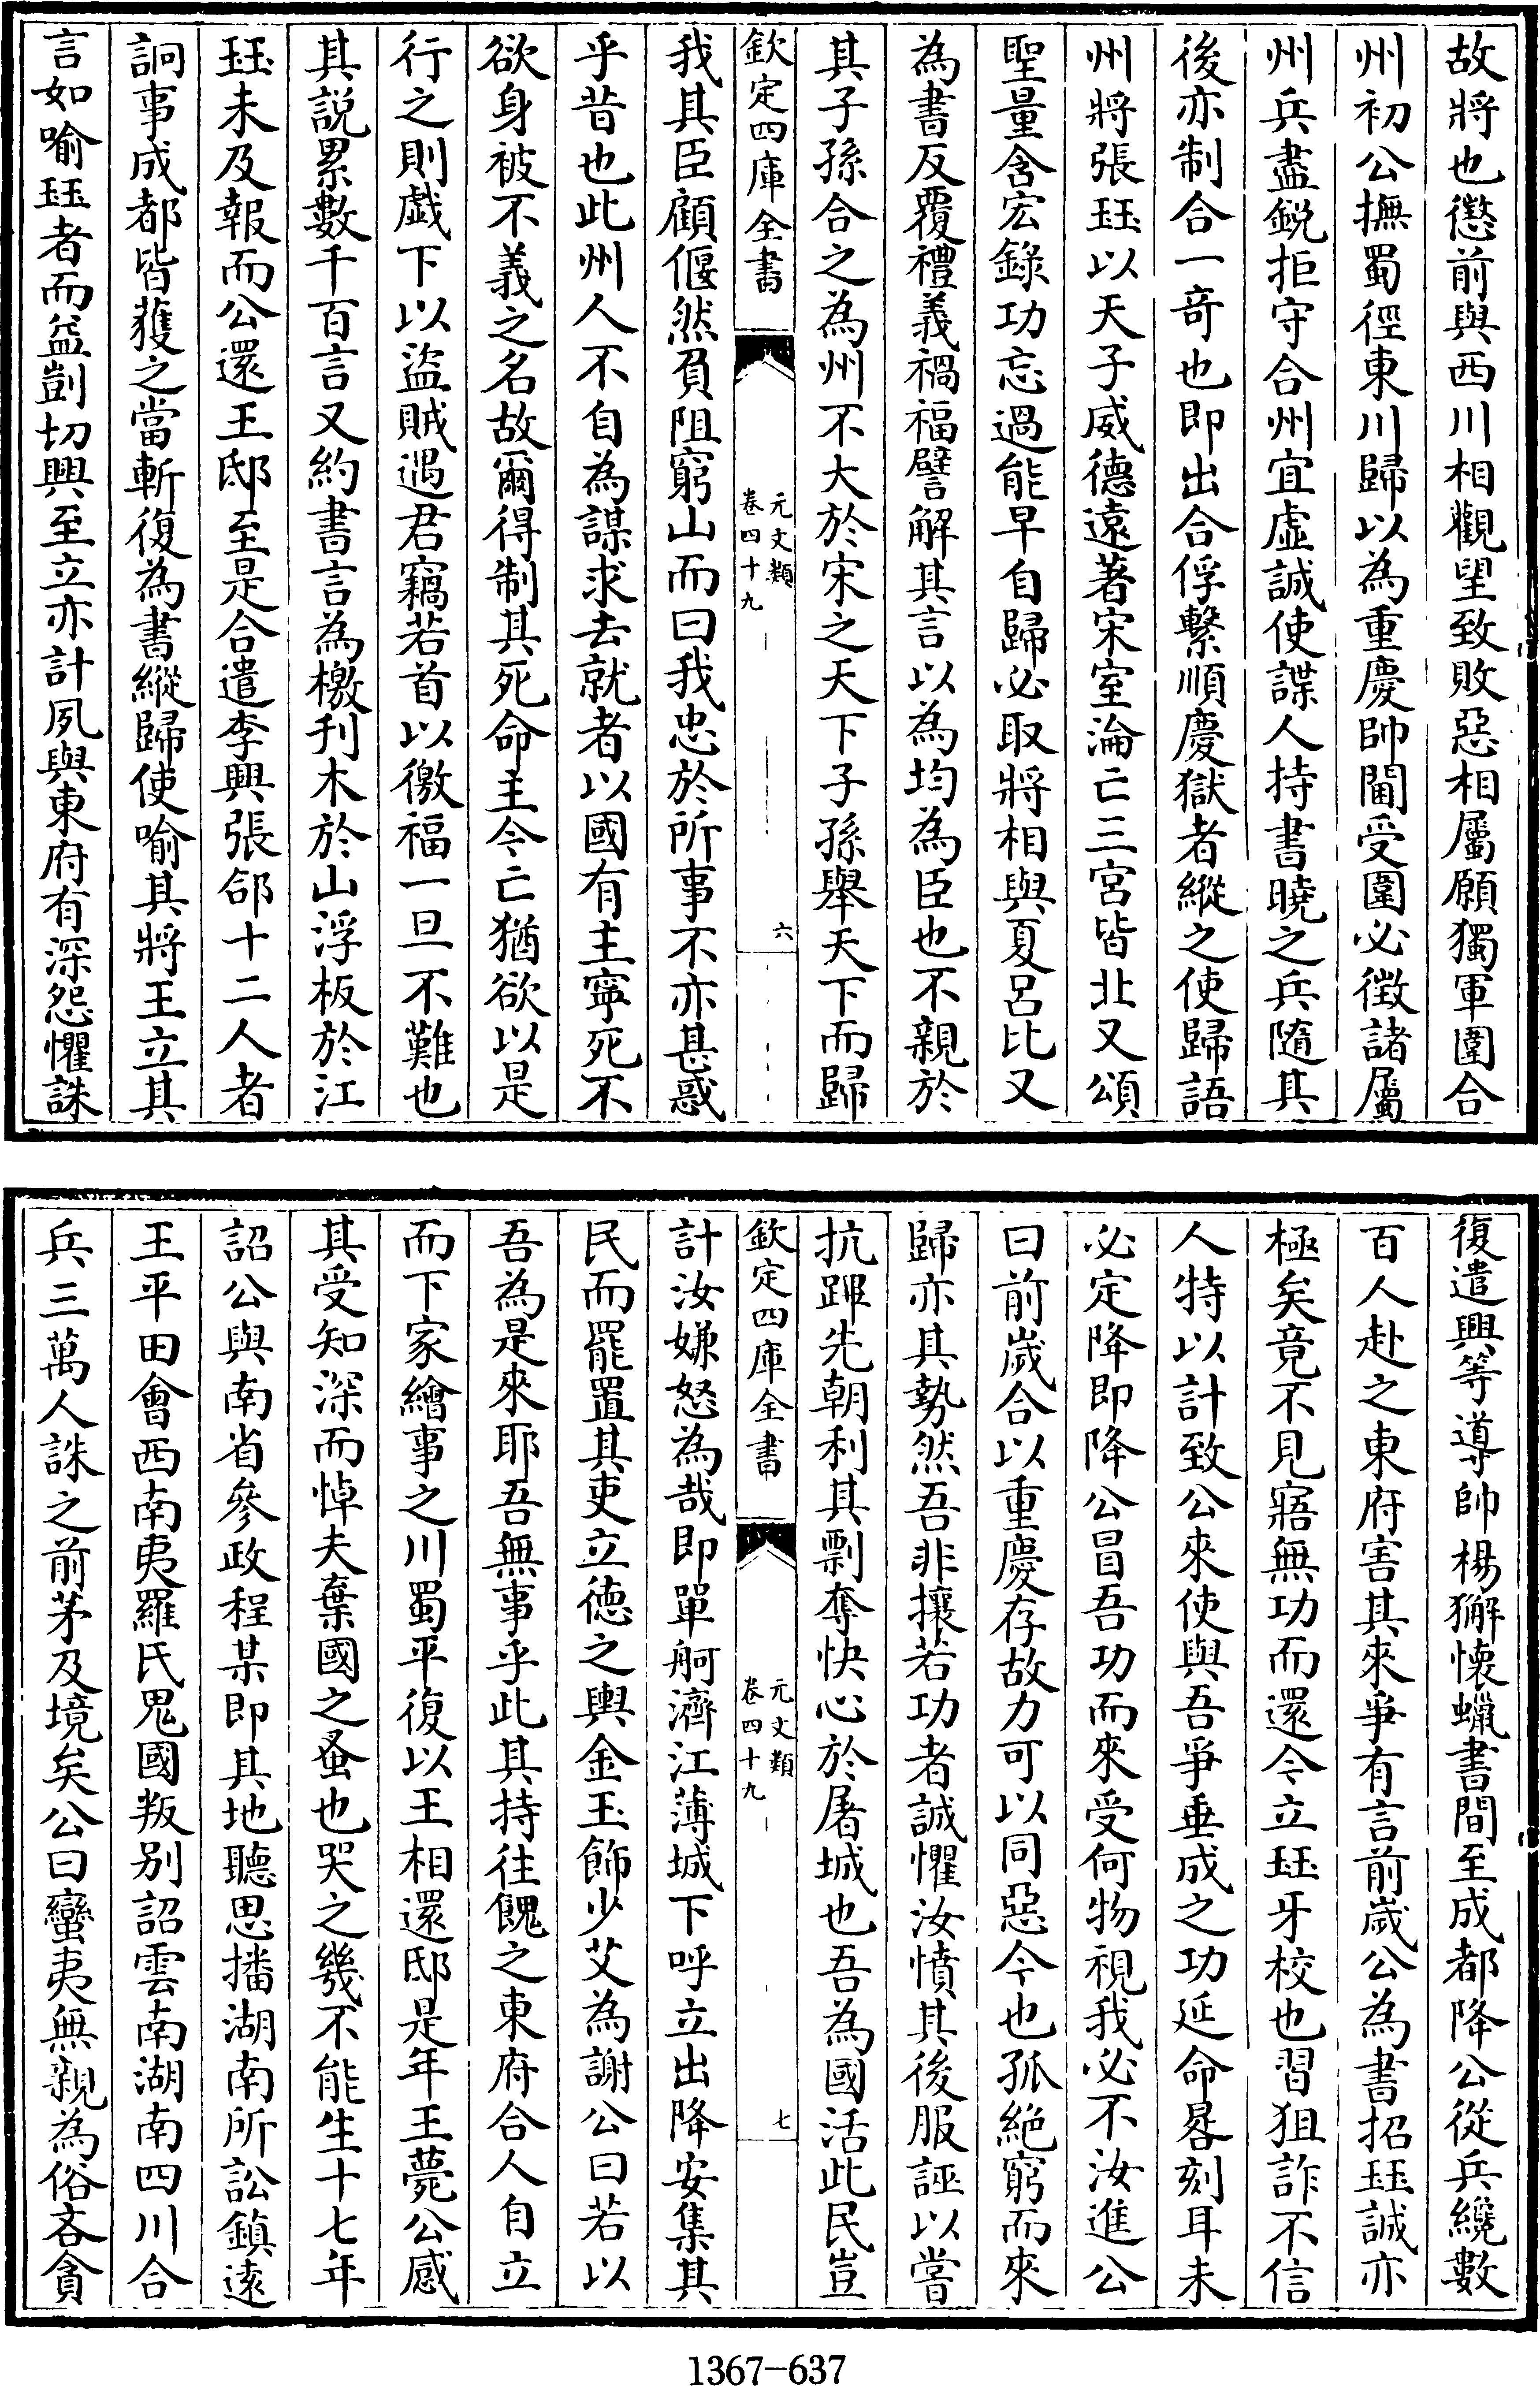 故將也懲前與西川相觀望致敗惡相屬願獨軍圍合
州初公撫蜀徑東川歸以為重慶帥閫受圍必徵諸屬
州兵盡銳拒守合州宜虛誠使諜人持書曉之兵隨其
後亦制合一奇也即出合俘繫順慶獄者縱之使歸語
州將張珏以天子威德遠著宋室淪亡三宮皆北又頌
聖量含宏錄功忘過能早自歸必取將相與夏呂比又
為書反覆禮義禍福譬解其言以為均為臣也不親於
其子孫合之為州不大於宋之天下子孫舉天下而歸
欽定四庫全書
元文類
卷四十九
六
我其臣顧偃然負阻窮山而曰我忠於所事不亦甚惑
乎昔也此州人不自為謀求去就者以國有主寧死不
欲身被不義之名故爾得制其死命主今亡猶欲以是
行之則戲下以盜賊遇君竊若首以徼福一旦不難也
其說累數千百言又約書言為檄刋木於山浮板於江
珏未及報而公還王邸至是合遣李興張郃十二人者
詗事成都皆獲之當斬復為書縱歸使喻其將王立其
言如喻珏者而益剴切興至立亦計夙與東府有深怨懼誅
復遣興等導帥楊獬懷蠟書間至成都降公從兵纔數
百人赴之東府害其來爭有言前歲公為書招珏誠亦
極矣竟不見寤無功而還今立珏牙校也習狙詐不信
人特以計致公來使與吾爭垂成之功延命晷刻耳未
必定降即降公冒吾功而來受何物視我必不汝進公
曰前歲合以重慶存故力可以同惡今也孤絕窮而來
歸亦其勢然吾非攘若功者誠懼汝憤其後服誣以嘗
抗蹕先朝利其剽奪快心於屠城也吾為國活此民豈
欽定四庫全書
元文類
卷四十九
七
計汝嫌怒為哉即單舸濟江薄城下呼立出降安集其
民而罷置其吏立德之輿金玉飾少艾為謝公曰若以
吾為是來耶吾無事乎此其持往餽之東府合人自立
而下家繪事之川蜀平復以王相還邸是年王薨公感
其受知深而悼夫棄國之蚤也哭之幾不能生十七年
詔公與南省參政程某即其地聽思播湖南所訟鎮遠
王平田會西南夷羅氏鬼國叛别詔雲南湖南四川合
兵三萬人誅之前茅及境矣公曰蠻夷無親為俗吝貪
1367-637